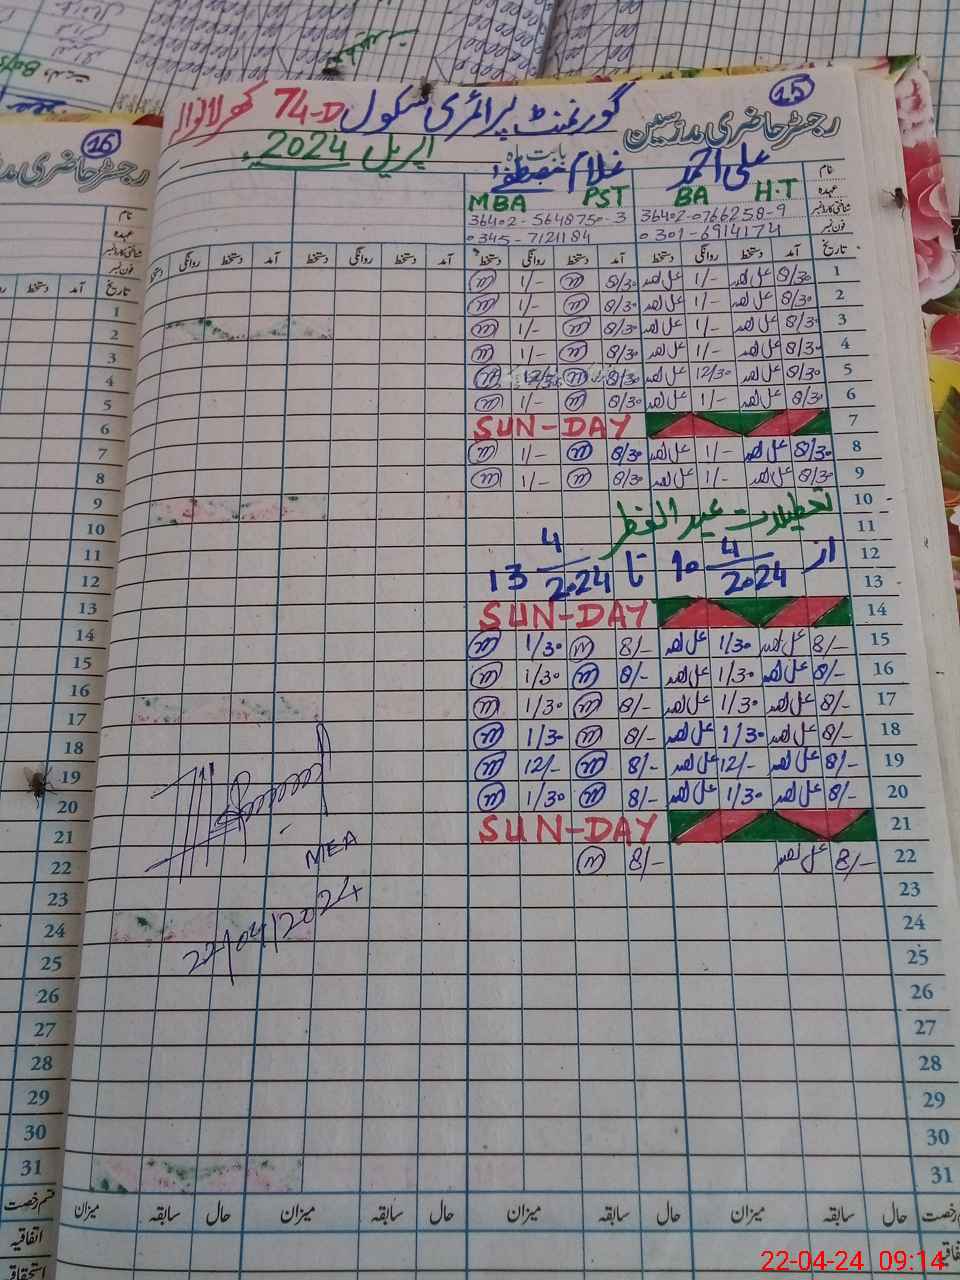 15
رجسٹر حاضری مدرسین
گورنمنٹ پرائمری سکول 74-D کھرلانوالہ
بابت ماہ اپریل 2024
نام علی احمد غلام مصطفیٰ
عہدہ H.T BA PST MBA
شناختی کارڈ نمبر 36402-0766258-9 36402-5648750-3
فون نمبر 0301-6914174 0345-7121184
تاریخ آمد دستخط روانگی دستخط آمد دستخط روانگی دستخط آمد دستخط روانگی دستخط
1 8/30 علی احمد 1/- علی احمد 8/30 m 1/- m
2 8/30 علی احمد 1/- علی احمد 8/30 m 1/- m
3 8/30 علی احمد 1/- علی احمد 8/30 m 1/- m
4 8/30 علی احمد 1/- علی احمد 8/30 m 1/- m
5 8/30 علی احمد 12/30 علی احمد 8/30 m 12/30 m
6 8/30 علی احمد 1/- علی احمد 8/30 m 1/- m
7 SUN-DAY
8 8/30 علی احمد 1/- علی احمد 8/30 m 1/- m
9 8/30 علی احمد 1/- علی احمد 8/30 m 1/- m
10
11 تعطیلات عید الفطر
12 از 10 4/2024 تا 13 4/2024
13
14 SUN-DAY
15 8/- علی احمد 1/30 علی احمد 8/- m 1/30 m
16 8/- علی احمد 1/30 علی احمد 8/- m 1/30 m
17 8/- علی احمد 1/30 علی احمد 8/- m 1/30 m
18 8/- علی احمد 1/30 علی احمد 8/- m 1/30 m
19 8/- علی احمد 12/- علی احمد 8/- m 12/- m
20 8/- علی احمد 1/30 علی احمد 8/- m 1/30 m
21 SUN-DAY
22 8/- علی احمد 8/- m
23
24
25
26
27
28
29
30
31
MEA
22/04/2024
قسم رخصت حال سابقہ میزان حال سابقہ میزان حال سابقہ میزان حال سابقہ میزان
16
رجسٹر حاضری
نام
عہدہ
شناختی کارڈ نمبر
فون نمبر
تاریخ آمد دستخط
1
2
3
4
5
6
7
8
9
10
11
12
13
14
15
16
17
18
19
20
21
22
23
24
25
26
27
28
29
30
31
قسم رخصت
اتفاقیہ
استحقاقیہ
22-04-24 09:14